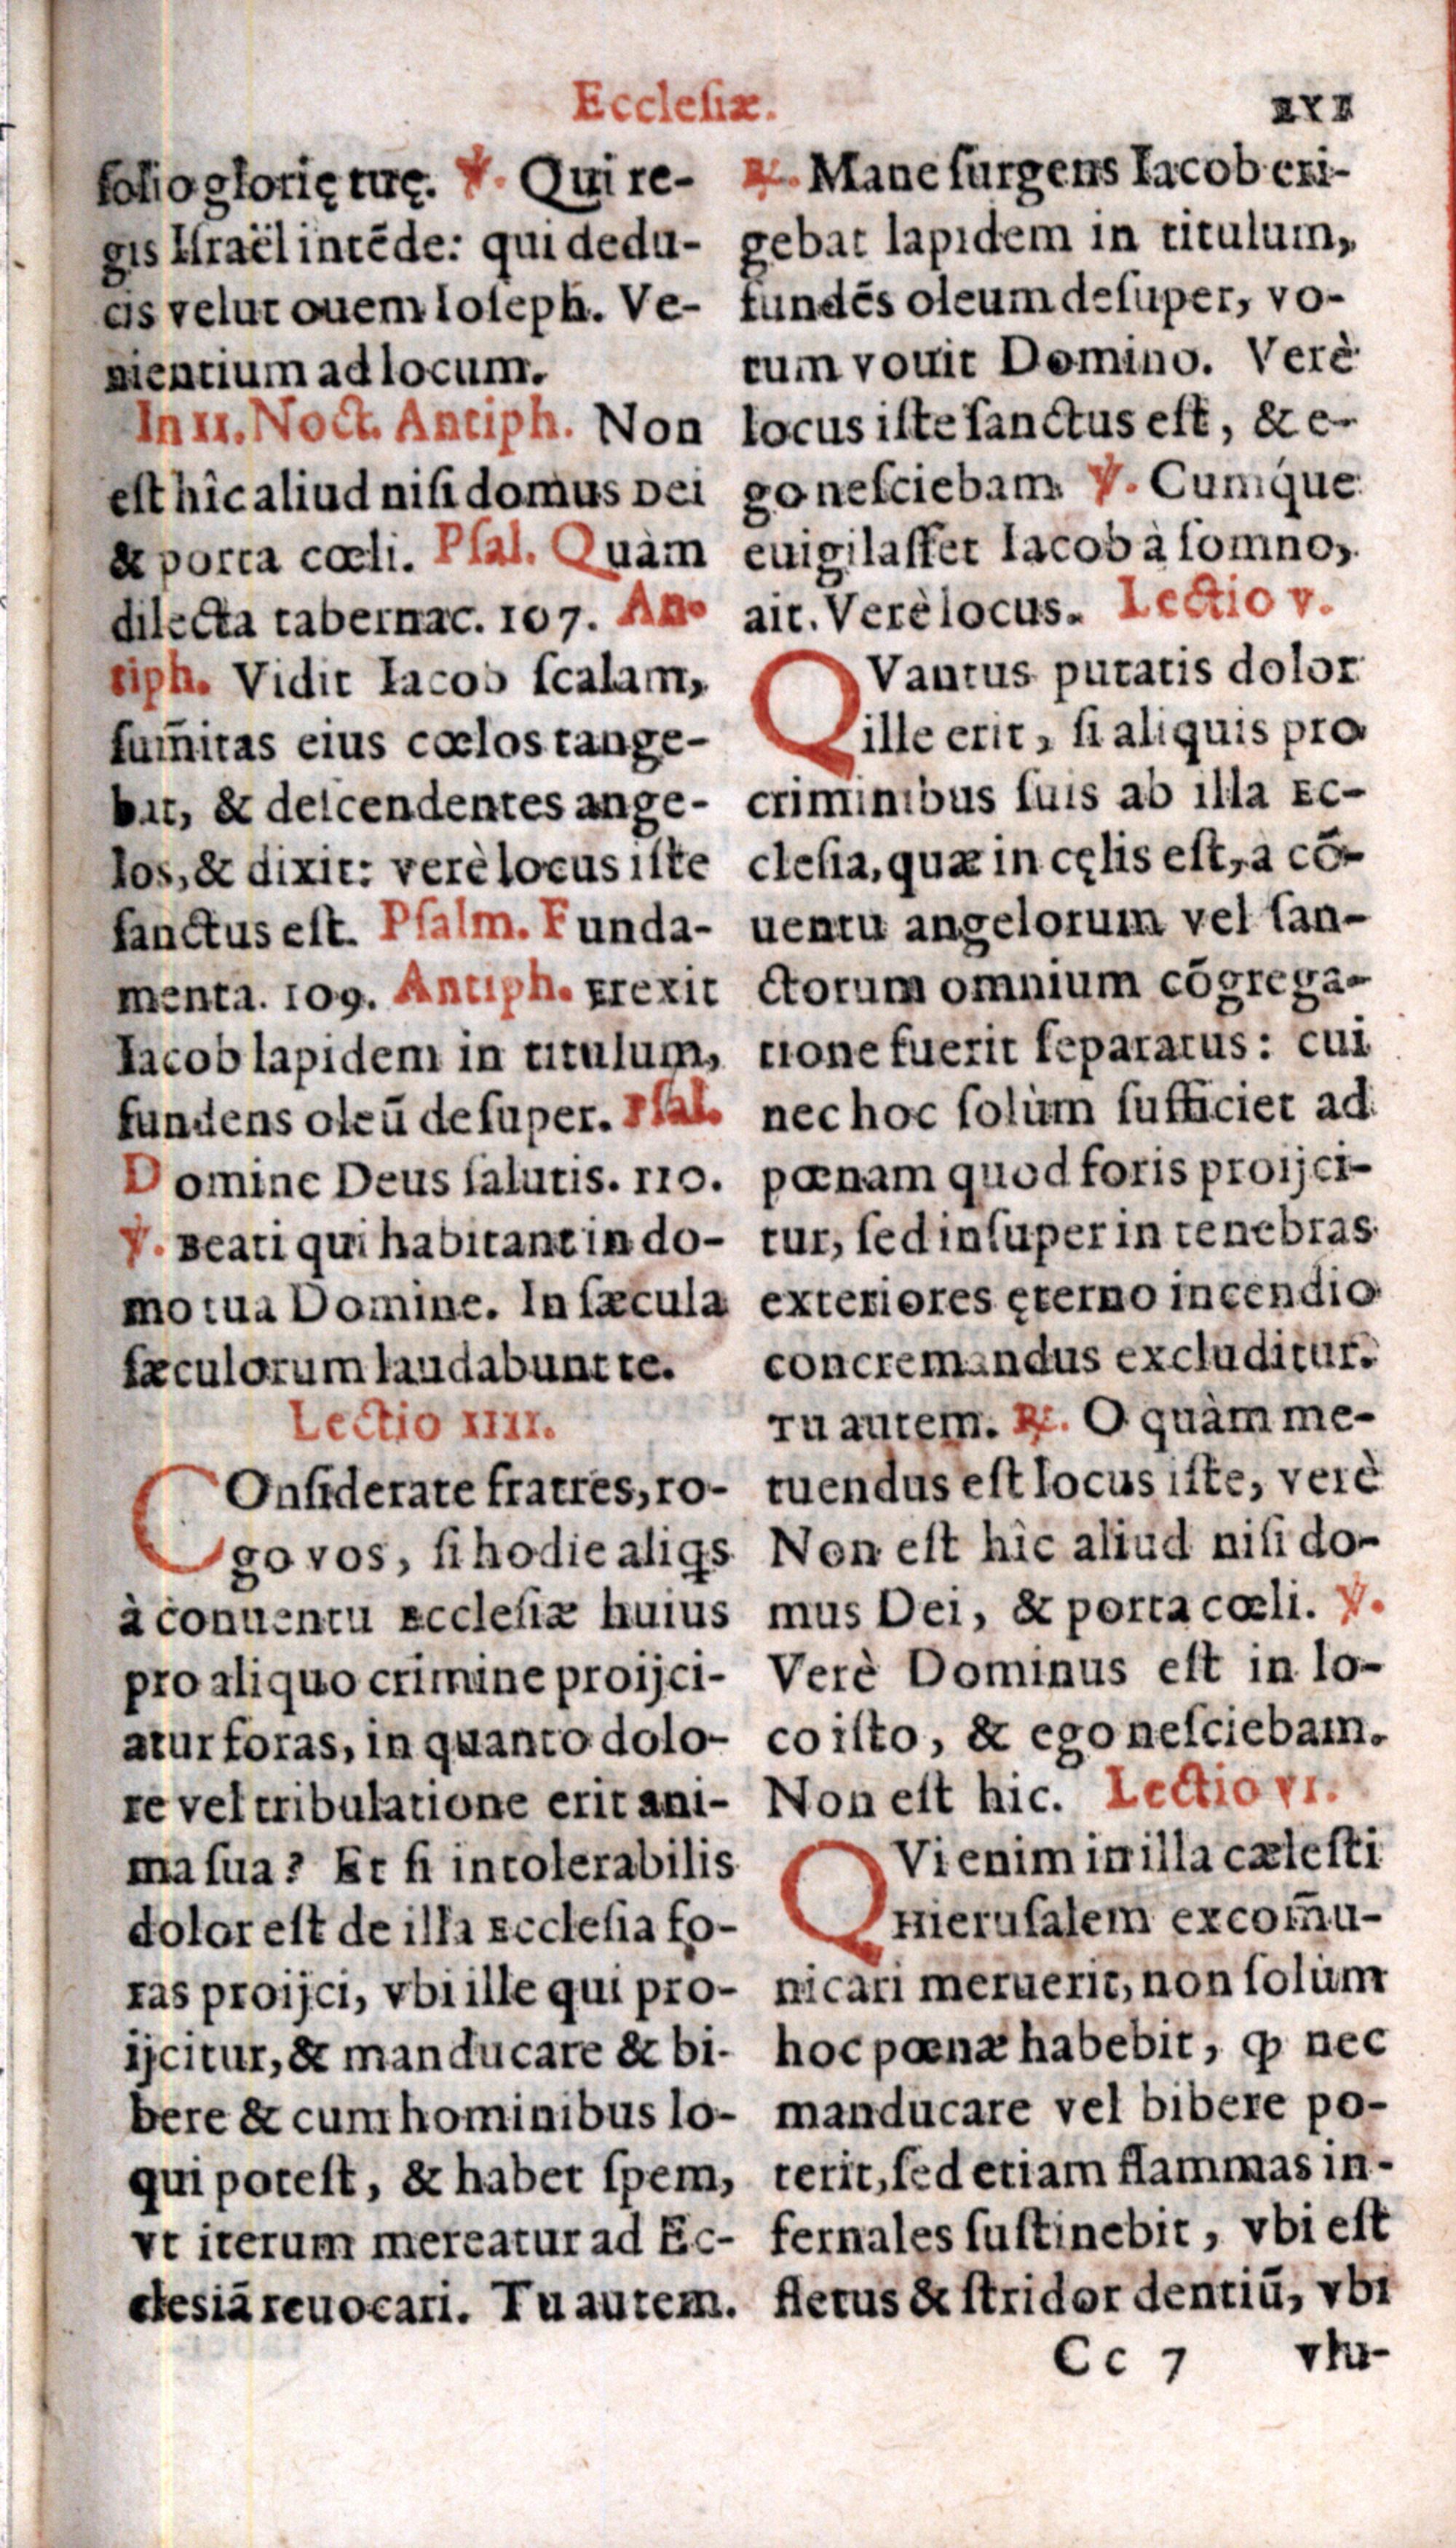 Ecclesiæ.
xxi
solio glorię tuę. ℣. Qui re-
gis Israël intēde: qui dedu-
cis velut ouem Ioseph. Ve-
nientium ad locum.
In II. Noct. Antiph. Non
est hîc aliud nisi domus Dei
& porta cœli. Psal. Quàm
dilecta tabernac. 107. An-
tiph. Vidit Iacob scalam,
sum̄itas eius cœlos tange-
bat, & descendentes ange-
los, & dixit: verè locus iste
sanctus est. Psalm. Funda-
menta. 109. Antiph. Erexit
Iacob lapidem in titulum,
fundens oleū desuper. Psal.
Domine Deus salutis. 110.
℣. Beati qui habitant in do-
mo tua Domine. In sæcula
sæculorum laudabunt te.
Lectio IIII.
COnsiderate fratres, ro-
go vos, si hodie aliqs
à conuentu Ecclesiæ huius
pro aliquo crimine proijci-
atur foras, in quanto dolo-
re vel tribulatione erit ani-
ma sua? Et si intolerabilis
dolor est de illa Ecclesia fo-
ras proijci, vbi ille qui pro-
ijcitur, & manducare & bi-
bere & cum hominibus lo-
qui potest, & habet spem,
vt iterum mereatur ad Ec-
clesiā reuocari. Tu autem.
℟. Mane surgens Iacob eri-
gebat lapidem in titulum,
fundēs oleum desuper, vo-
tum vouit Domino. Verè
locus iste sanctus est, & e-
go nesciebam. ℣. Cumq́ue
euigilasset Iacob à somno,
ait. Verè locus. Lectio v.
QVantus putatis dolor
ille erit, si aliquis pro
criminibus suis ab illa Ec-
clesia, quæ in cęlis est, a cō-
uentu angelorum vel san-
ctorum omnium cōgrega-
tione fuerit separatus: cui
nec hoc solùm sufficiet ad
pœnam quod foris proijci-
tur, sed insuper in tenebras
exteriores ęterno incendio
concremandus excluditur.
Tu autem. ℟. O quàm me-
tuendus est locus iste, verè
Non est hîc aliud nisi do-
mus Dei, & porta cœli. ℣.
Verè Dominus est in lo-
co isto, & ego nesciebam.
Non est hic. Lectio VI.
QVi enim in illa cælesti
Hierusalem excom̄u-
nicari meruerit, non solùm
hoc pœnæ habebit, ꝙ nec
manducare vel bibere po-
terit, sed etiam flammas in-
fernales sustinebit, vbi est
fletus & stridor dentiū, vbi
Cc 7
vlu-